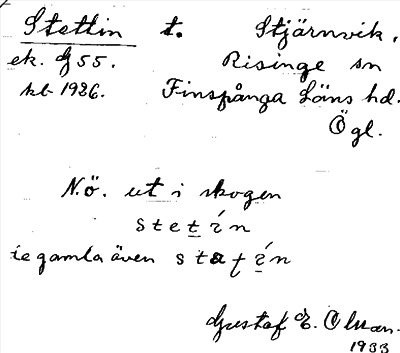 Stettin t. Stjärnvik.
ek. g 55. Risinge sn
kb 1926. Finspånga Läns hd.
Ögl.
N.ö. ut i skogen
stetín
ie gamla även statín
Gustaf E. Olsson.
1933